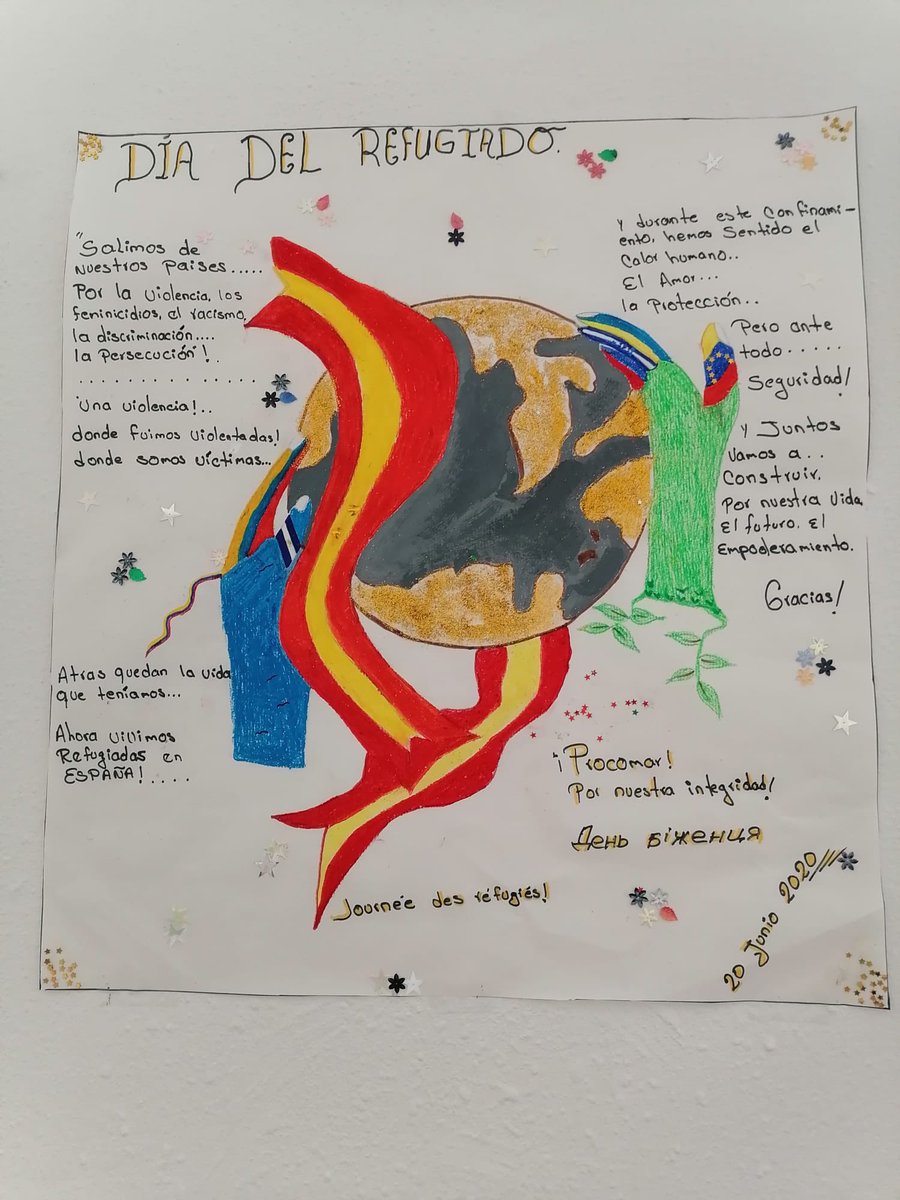 DÍA DEL REFUGIADO.
"Salimos de
nuestros paises.....
Por la violencia, los
feminicidios, al racismo,
la discriminación....
la Persecución"!
..............
'Una violencia!..
donde fuimos violentadas!
donde somos víctimas...
Atras quedan la vida
que teníamos...
Ahora vivimos
Refugiadas en
ESPAÑA!.....
y durante este confinami-
ento, hemos Sentido el
Calor humano..
El Amor...
la Protección..
Pero ante
todo.....
Seguridad!
y Juntos
Vamos a..
Construir.
Por nuestra vida
El futuro. El
Empoderamiento.
Gracias!
¡Procomar!
Por nuestra integridad!
День біженця
Journée des réfugiés!
20 Junio 2020